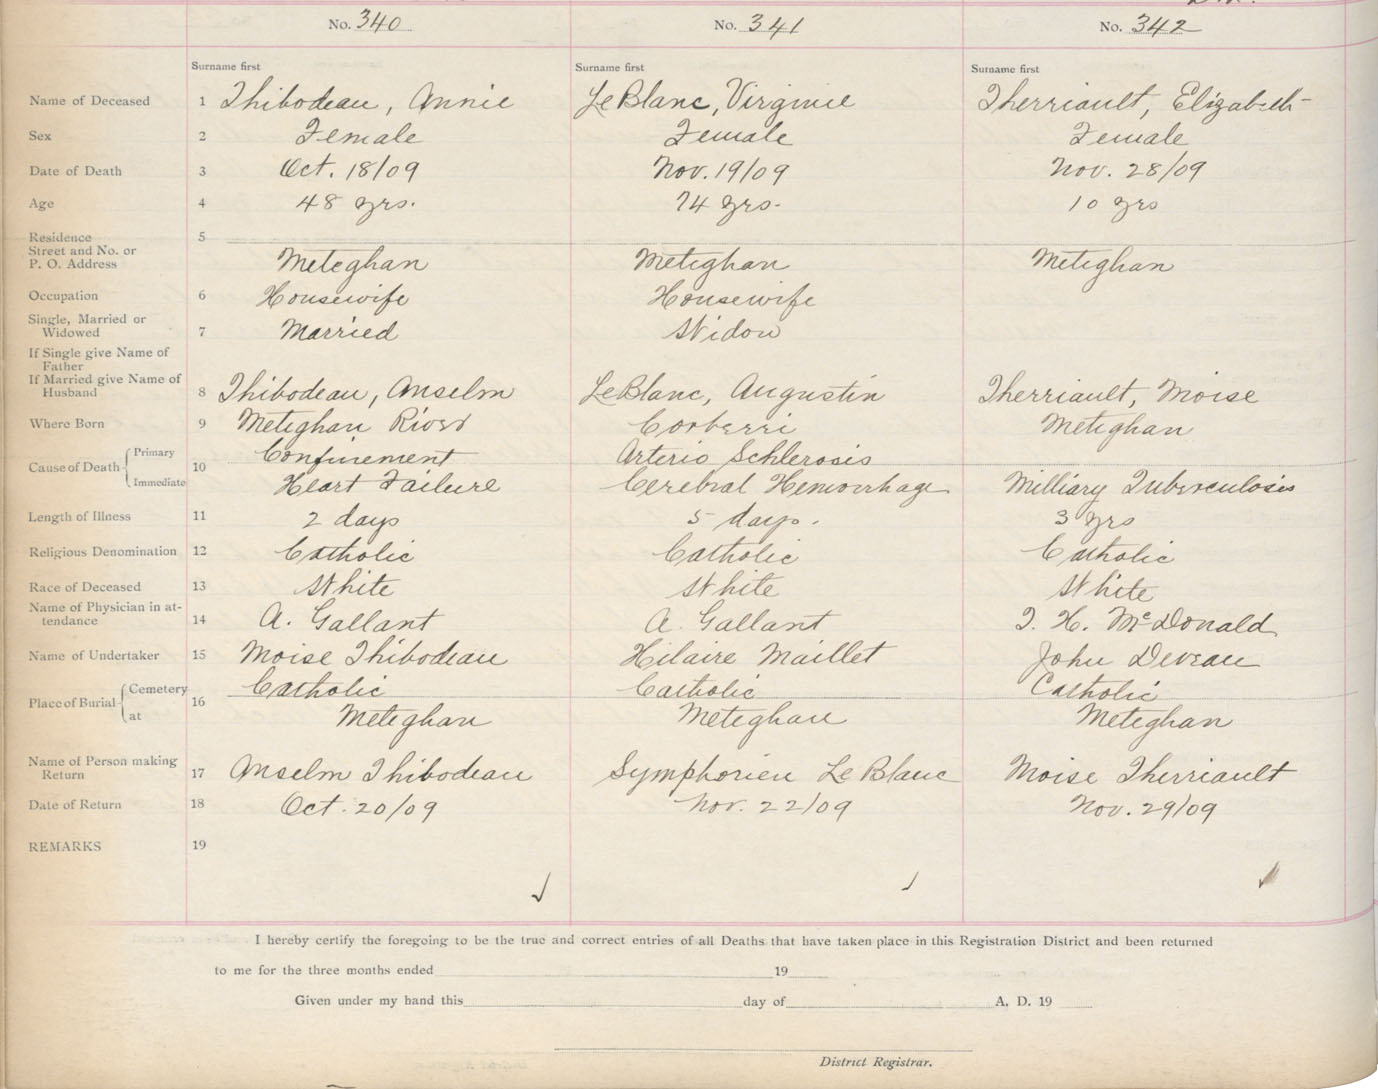 No. 340 No. 341 No. 342
Surname first Surname first Surname first
Name of Deceased 1 Thibodeau, Annie LeBlanc, Virginie Therriault, Elizabeth
Sex 2 Female Female Female
Date of Death 3 Oct. 18/09 Nov. 19/09 Nov. 28/09
Age 4 48 yrs. 74 yrs. 10 yrs
Residence 5
Street and No. or
P. O. Address Meteghan Meteghan Meteghan
Occupation 6 Housewife Housewife
Single, Married or
Widowed 7 Married Widow
If Single give Name of
Father
If Married give Name of
Husband 8 Thibodeau, Anselm LeBlanc, Augustin Therriault, Moise
Where Born 9 Meteghan River Corberri Meteghan
Cause of Death Primary 10 Confinement Arterio Schlerosis
Immediate Heart Failure Cerebral Hemorrhage Milliary Tuberculosis
Length of Illness 11 2 days 5 days. 3 yrs
Religious Denomination 12 Catholic Catholic Catholic
Race of Deceased 13 White White White
Name of Physician in at-
tendance 14 A. Gallant A. Gallant T. H. McDonald
Name of Undertaker 15 Moise Thibodeau Hilaire Maillet John Deveau
Place of Burial Cemetery 16 Catholic Catholic Catholic
at Meteghan Meteghan Meteghan
Name of Person making
Return 17 Anselm Thibodeau Symphorien LeBlanc Moise Therriault
Date of Return 18 Oct. 20/09 Nov. 22/09 Nov. 29/09
REMARKS 19
I hereby certify the foregoing to be the true and correct entries of all Deaths that have taken place in this Registration District and been returned
to me for the three months ended 19
Given under my hand this day of A. D. 19
District Registrar.